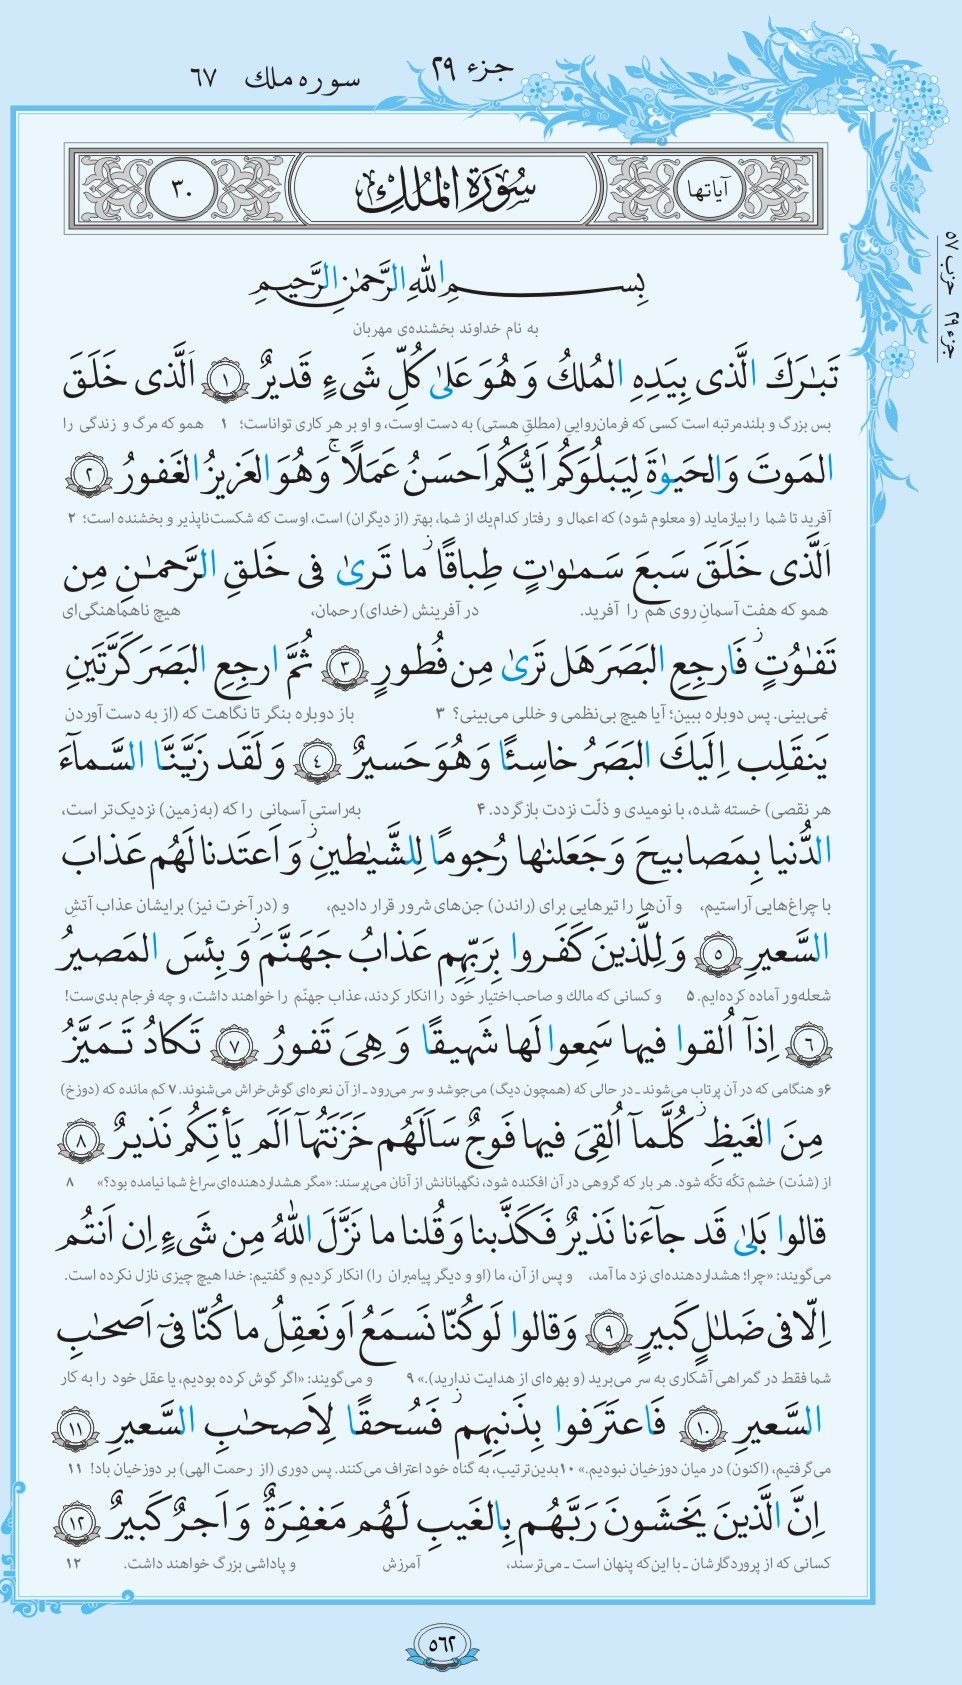 جزء ۲۹
سوره ملك ۶۷
آیاتها
سُورَةُ المُلكِ
۳۰
بِسمِ اللهِ الرَّحمٰنِ الرَّحیمِ
به نام خداوند بخشنده‌ی مهربان
تَبـٰرَكَ الَّذی بِیَدِهِ المُلكُ وَ هُوَ عَلیٰ كُلِّ شَیءٍ قَدیرٌ ۱ اَلَّذی خَلَقَ
بس بزرگ و بلندمرتبه است کسی که فرمان‌روایی (مطلقِ هستی) به دست اوست، و او بر هر کاری تواناست؛ ۱ همو که مرگ و زندگی را
المَوتَ وَ الحَیوٰةَ لِیَبلُوَكُم اَیُّكُم اَحسَنُ عَمَلًا ۚ وَ هُوَ العَزیزُ الغَفورُ ۲
آفرید تا شما را بیازماید (و معلوم شود) که اعمال و رفتار کدام‌یك از شما، بهتر (از دیگران) است، اوست که شکست‌ناپذیر و بخشنده است؛ ۲
اَلَّذی خَلَقَ سَبعَ سَمـٰوٰتٍ طِباقًا ز ما تَریٰ فی خَلقِ الرَّحمـٰنِ مِن
همو که هفت آسمانِ روی هم را آفرید. در آفرینش (خدای) رحمان، هیچ ناهماهنگی‌ای
تَفـٰوُتٍ ز فَارجِعِ البَصَرَ هَل تَریٰ مِن فُطورٍ ۳ ثُمَّ ارجِعِ البَصَرَ كَرَّتَینِ
نمی‌بینی. پس دوباره ببین؛ آیا هیچ بی‌نظمی و خللی می‌بینی؟ ۳ باز دوباره بنگر تا نگاهت که (از به دست آوردن
یَنقَلِب اِلَیكَ البَصَرُ خاسِئًا وَ هُوَ حَسیرٌ ۴ وَ لَقَد زَیَّنَّا السَّماءَ
هر نقصی) خسته شده، با نومیدی و ذلّت نزدت بازگردد. ۴ به‌راستی آسمانی را که (به زمین) نزدیک‌تر است،
الدُّنیا بِمَصابیحَ وَ جَعَلنـٰها رُجومًا لِلشَّیـٰطینِ ز وَ اَعتَدنا لَهُم عَذابَ
با چراغ‌هایی آراستیم، و آن‌ها را تیرهایی برای (راندن) جن‌های شرور قرار دادیم، و (در آخرت نیز) برایشان عذاب آتشِ
السَّعیرِ ۵ وَ لِلَّذینَ كَفَروا بِرَبِّهِم عَذابُ جَهَنَّمَ ز وَ بِئسَ المَصیرُ
شعله‌ور آماده کرده‌ایم. ۵ و کسانی که مالك و صاحب‌اختیار خود را انکار کردند، عذاب جهنّم را خواهند داشت، و چه فرجام بدی‌ست!
۶ اِذا اُلقوا فیها سَمِعوا لَها شَهیقًا وَ هِیَ تَفورُ ۷ تَكادُ تَمَیَّزُ
۶ و هنگامی که در آن پرتاب می‌شوند ـ در حالی که (همچون دیگ) می‌جوشد و سر می‌رود ـ از آن نعره‌ای گوش‌خراش می‌شنوند. ۷ کم مانده که (دوزخ)
مِنَ الغَیظِ ز كُلَّما اُلقِیَ فیها فَوجٌ سَاَلَهُم خَزَنَتُها اَلَم یَأتِكُم نَذیرٌ ۸
از (شدّت) خشم تکّه تکّه شود. هر بار که گروهی در آن افکنده شود، نگهبانانش از آنان می‌پرسند: «مگر هشداردهنده‌ای سراغ شما نیامده بود؟» ۸
قالوا بَلیٰ قَد جاءَنا نَذیرٌ فَكَذَّبنا وَ قُلنا ما نَزَّلَ اللهُ مِن شَیءٍ اِن اَنتُم
می‌گویند: «چرا؛ هشداردهنده‌ای نزد ما آمد، و پس از آن، ما (او و دیگر پیامبران را) انکار کردیم و گفتیم: خدا هیچ چیزی نازل نکرده است.
اِلّا فی ضَلـٰلٍ كَبیرٍ ۹ وَ قالوا لَو كُنّا نَسمَعُ اَو نَعقِلُ ما كُنّا فی اَصحـٰبِ
شما فقط در گمراهی آشکاری به سر می‌برید (و بهره‌ای از هدایت ندارید).» ۹ و می‌گویند: «اگر گوش کرده بودیم، یا عقل خود را به کار
السَّعیرِ ۱۰ فَاعتَرَفوا بِذَنبِهِم ز فَسُحقًا لِاَصحـٰبِ السَّعیرِ ۱۱
می‌گرفتیم، (اکنون) در میان دوزخیان نبودیم.» ۱۰ بدین‌ترتیب، به گناه خود اعتراف می‌کنند. پس دوری (از رحمت الهی) بر دوزخیان باد! ۱۱
اِنَّ الَّذینَ یَخشَونَ رَبَّهُم بِالغَیبِ لَهُم مَغفِرَةٌ وَ اَجرٌ كَبیرٌ ۱۲
کسانی که از پروردگارشان ـ با این‌که پنهان است ـ می‌ترسند، آمرزش و پاداشی بزرگ خواهند داشت. ۱۲
۵۶۲
جزء ۲۹ حزب ۵۷